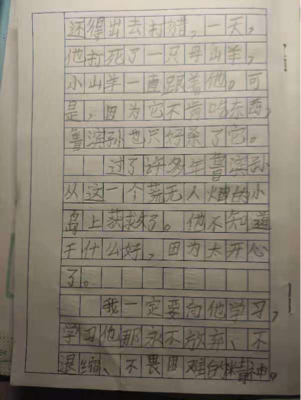 还得出去打猎,一天,
他打死了一只母山羊,
小山羊一直跟着他。可
是,因为它不肯吃东西,
鲁滨孙也只好杀了它。
过了许多年鲁滨孙
从这一个荒无人烟的小
岛上获救了。他不知道
干什么好,因为太开心
了。
我一定要向他学习,
学习他那永不放弃、不
退缩、不畏困难的精神。